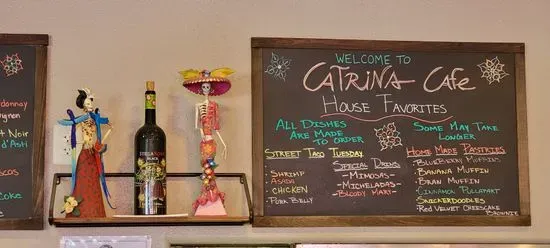 rdonnay
t Noir
d'Asti
cos
Coke
WELCOME TO
CATRINA CAFE
HOUSE FAVORITES
ALL DISHES
ARE MADE
TO ORDER
SOME MAY TAKE
LONGER
STREET TACO TUESDAY
- SHRIMP
ASADA
- CHICKEN
- PORK BELLY
SPECIAL DRINKS
- MIMOSAS -
- MICHELADAS -
- BLOODY MARY -
HOME MADE PASTRIES
- BLUEBERRY MUFFINS
- BANANA MUFFIN
- BRAN MUFFIN
- CINNAMON PULLAPART
- SNICKERDOODLES
- RED VELVET CHEESCAKE
BROWNIE